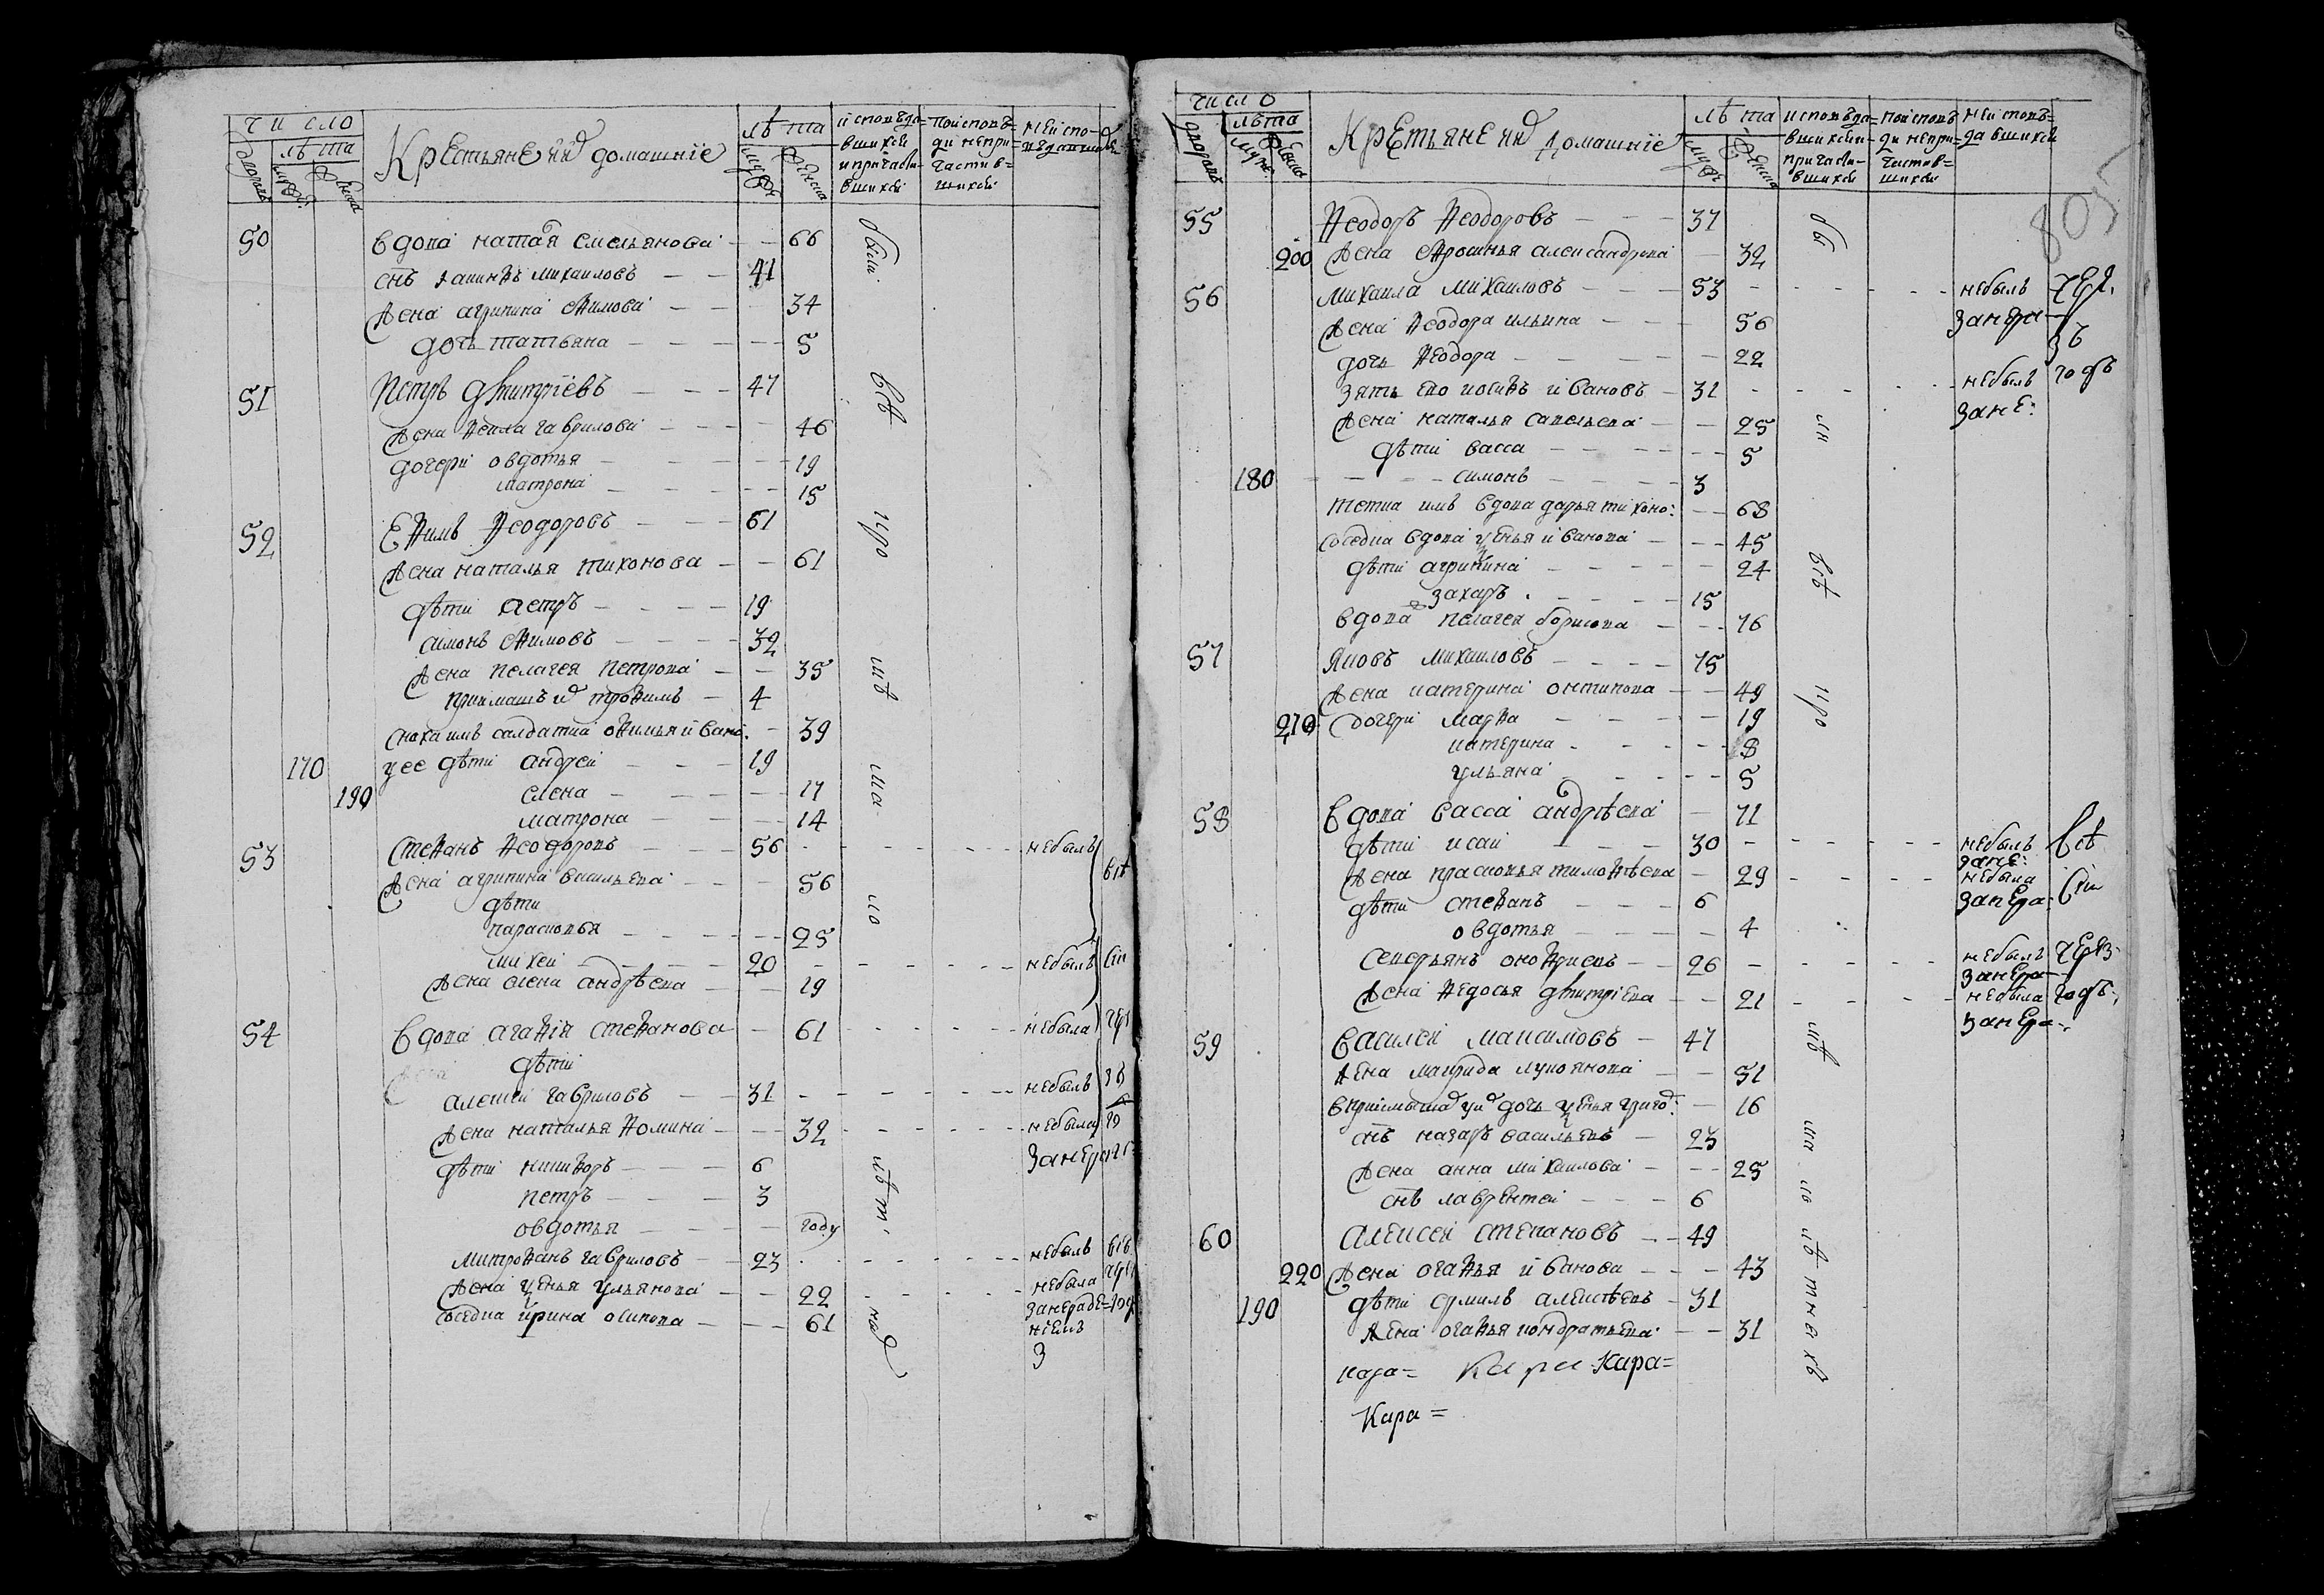 число
лѣта
дворовъ
муж:
женска
Крестьяне ид домашніе
лѣта
муж
женска
исповѣда=
вшихся
и причасти=
вшихся
поисповѣ=
ди непри=
частив=
шихся
неиспо=
ведавшихся
50 вдова наталя емельянова 66
снъ михаиловъ 41
жена агрипина ѳимова 34
дочь татьяна 5
51 Петръ дмитріевъ 47
жена ѳекла гаврилова 46
дочери овдотья 19
матрона 15
52 Еѳимъ Ѳеодоровъ 61
жена наталья тихонова 61
дѣти петръ 19
симонъ ѳимовъ 32
жена пелагея петрова 35
приимышъ ид троѳимъ 4
сноха имъ салдатка оѳимья ивано: 39
170 уее дѣти андреи 19
190 елена 17
матрона 14
53 Стеѳанъ ѳеодоровъ 56 небылъ
жена агрипина василиева 56
дѣти
парасковья 25
михеи 20 небылъ
жена елена андрѣева 19
54 вдова агаѳія стеѳанова 61 небыла
дѣти
алексіи гавриловъ 31 небылъ
жена наталья ѳомина 32 небыла
дѣти никиѳоръ 6
петръ 3
овдотья году
митроѳанъ гавриловъ 23 небылъ
жена ѯенья ульянова 22 небыла
соседка ирина осипова 61
занераде=
ніемъ
3
были
всѣ
про
ша
ко
число
лѣта
дворовъ
муж:
женска
Крестьяне ид домашніе
лѣта
муж
женска
исповѣда=
вшихся и
причасти=
вшихся
поисповѣ=
ди непри=
частив=
шихся
неисповѣ=
давшихся
805
55 Ѳеодоръ Ѳеодоровъ 37
200 жена александрова 32
56 михаила михаиловъ 53 небылъ
занера
жена ѳеодора ильина 56
дочь ѳеодора 22
зять ево иосиѳъ ивановъ 31 небылъ
зане:
годъ
жена наталья савельева 25
дѣти васса 5
180 симонъ 3
тетка имъ вдова дарья тихоно: 68
соседка вдова ѯенья иванова 45
дѣти агрипина 24
захаръ 15
вдова пелагея борисова 76
57 яковъ михаиловъ 75
жена катерина онтипова 49
210 дочери марѳа 19
катерина 8
ульяна 5
58 вдова васса андрѣева 71
дѣти исаи 30 небылъ
зане:
всѣ
жена прасковья тимоѳѣева 29 небыла
занера:
дѣти стеѳанъ 6
овдотья 4
северьянъ оноѳриевъ 26 небылъ
занера
через
жена ѳедосья дмитріева 21 небыла
занера
годъ
59 василеи максимовъ 47
жена маврида лукоянова 51
дочь ѯенья 16
снъ назаръ васильевъ 23
жена анна михаилова 25
снъ лаврентеи 6
60 алексеи степановъ 49
220 жена огаѳья иванова 43
190 дѣти ермилъ алексѣевъ 31
жена огаѳья кондратьева 31
бы
ли
всѣ
про
кара= Кара Кара=
Кара=